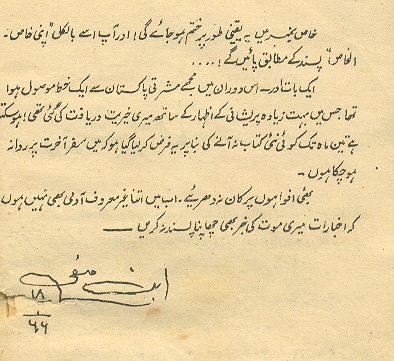 خاص نمبر میں یہ یقینی طور پر ختم ہو جائے گی! اور آپ اسے بالکل "اپنی خاص۔
الخاص" پسند کے مطابق پائیں گے! ....
ایک بات اور۔ اس دوران میں مجھے مشرقی پاکستان سے ایک خط موصول ہوا
تھا جس میں بہت زیادہ پریشانی کے اظہار کے ساتھ میری خیریت دریافت کی گئی تھی! ہو سکتا
ہے تین ماہ تک کوئی نئی کتاب نہ آنے کی بنا پر یہ فرض کر لیا گیا ہو کہ میں سفر آخرت پر روانہ
ہو چکا ہوں۔
بھئی افواہوں پر کان نہ دھریئے۔ اب میں اتنا غیر معروف آدمی بھی نہیں ہوں
کہ اخبارات میری موت کی خبر بھی چھاپنا پسند نہ کریں ——
ابن صفی
۱۸
۱
۶۶